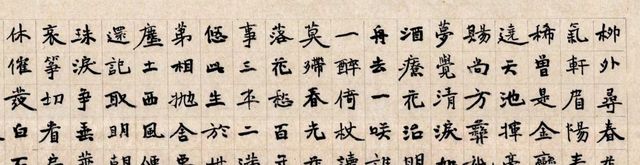 柳外尋春
氣軒眉
稀曾是金
達天池揮
賜尚方彝
夢覺清淚
酒療花治
舟去一咲
一醉倚杖
莫掃春光
落花愁百
事三年二
恁此生於
弟相拋含
塵土西風
還記取明
珠淚爭垂
哀箏切看
休催發白